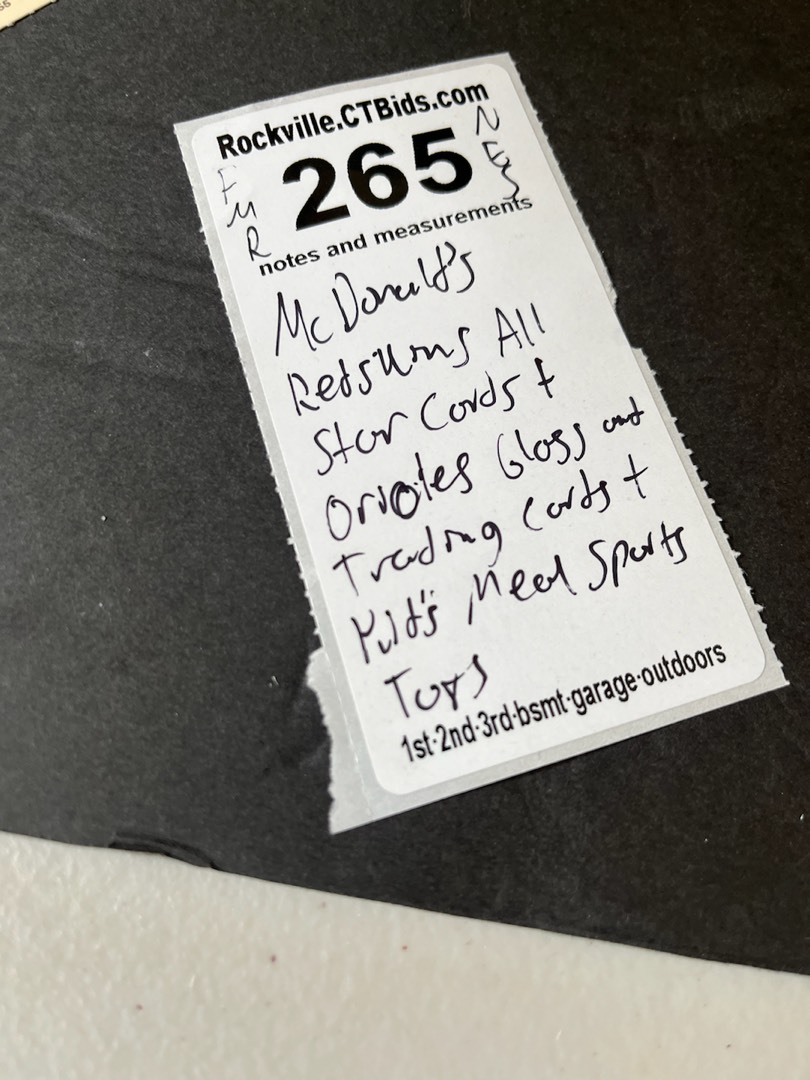 Rockville.CTBids.com
FMR 265 NES
notes and measurements
McDonald's
Redskins All
Star Cards +
Orioles Glass and
Trading Cards +
Meal Sports
Toys
1st·2nd·3rd·bsmt·garage·outdoors